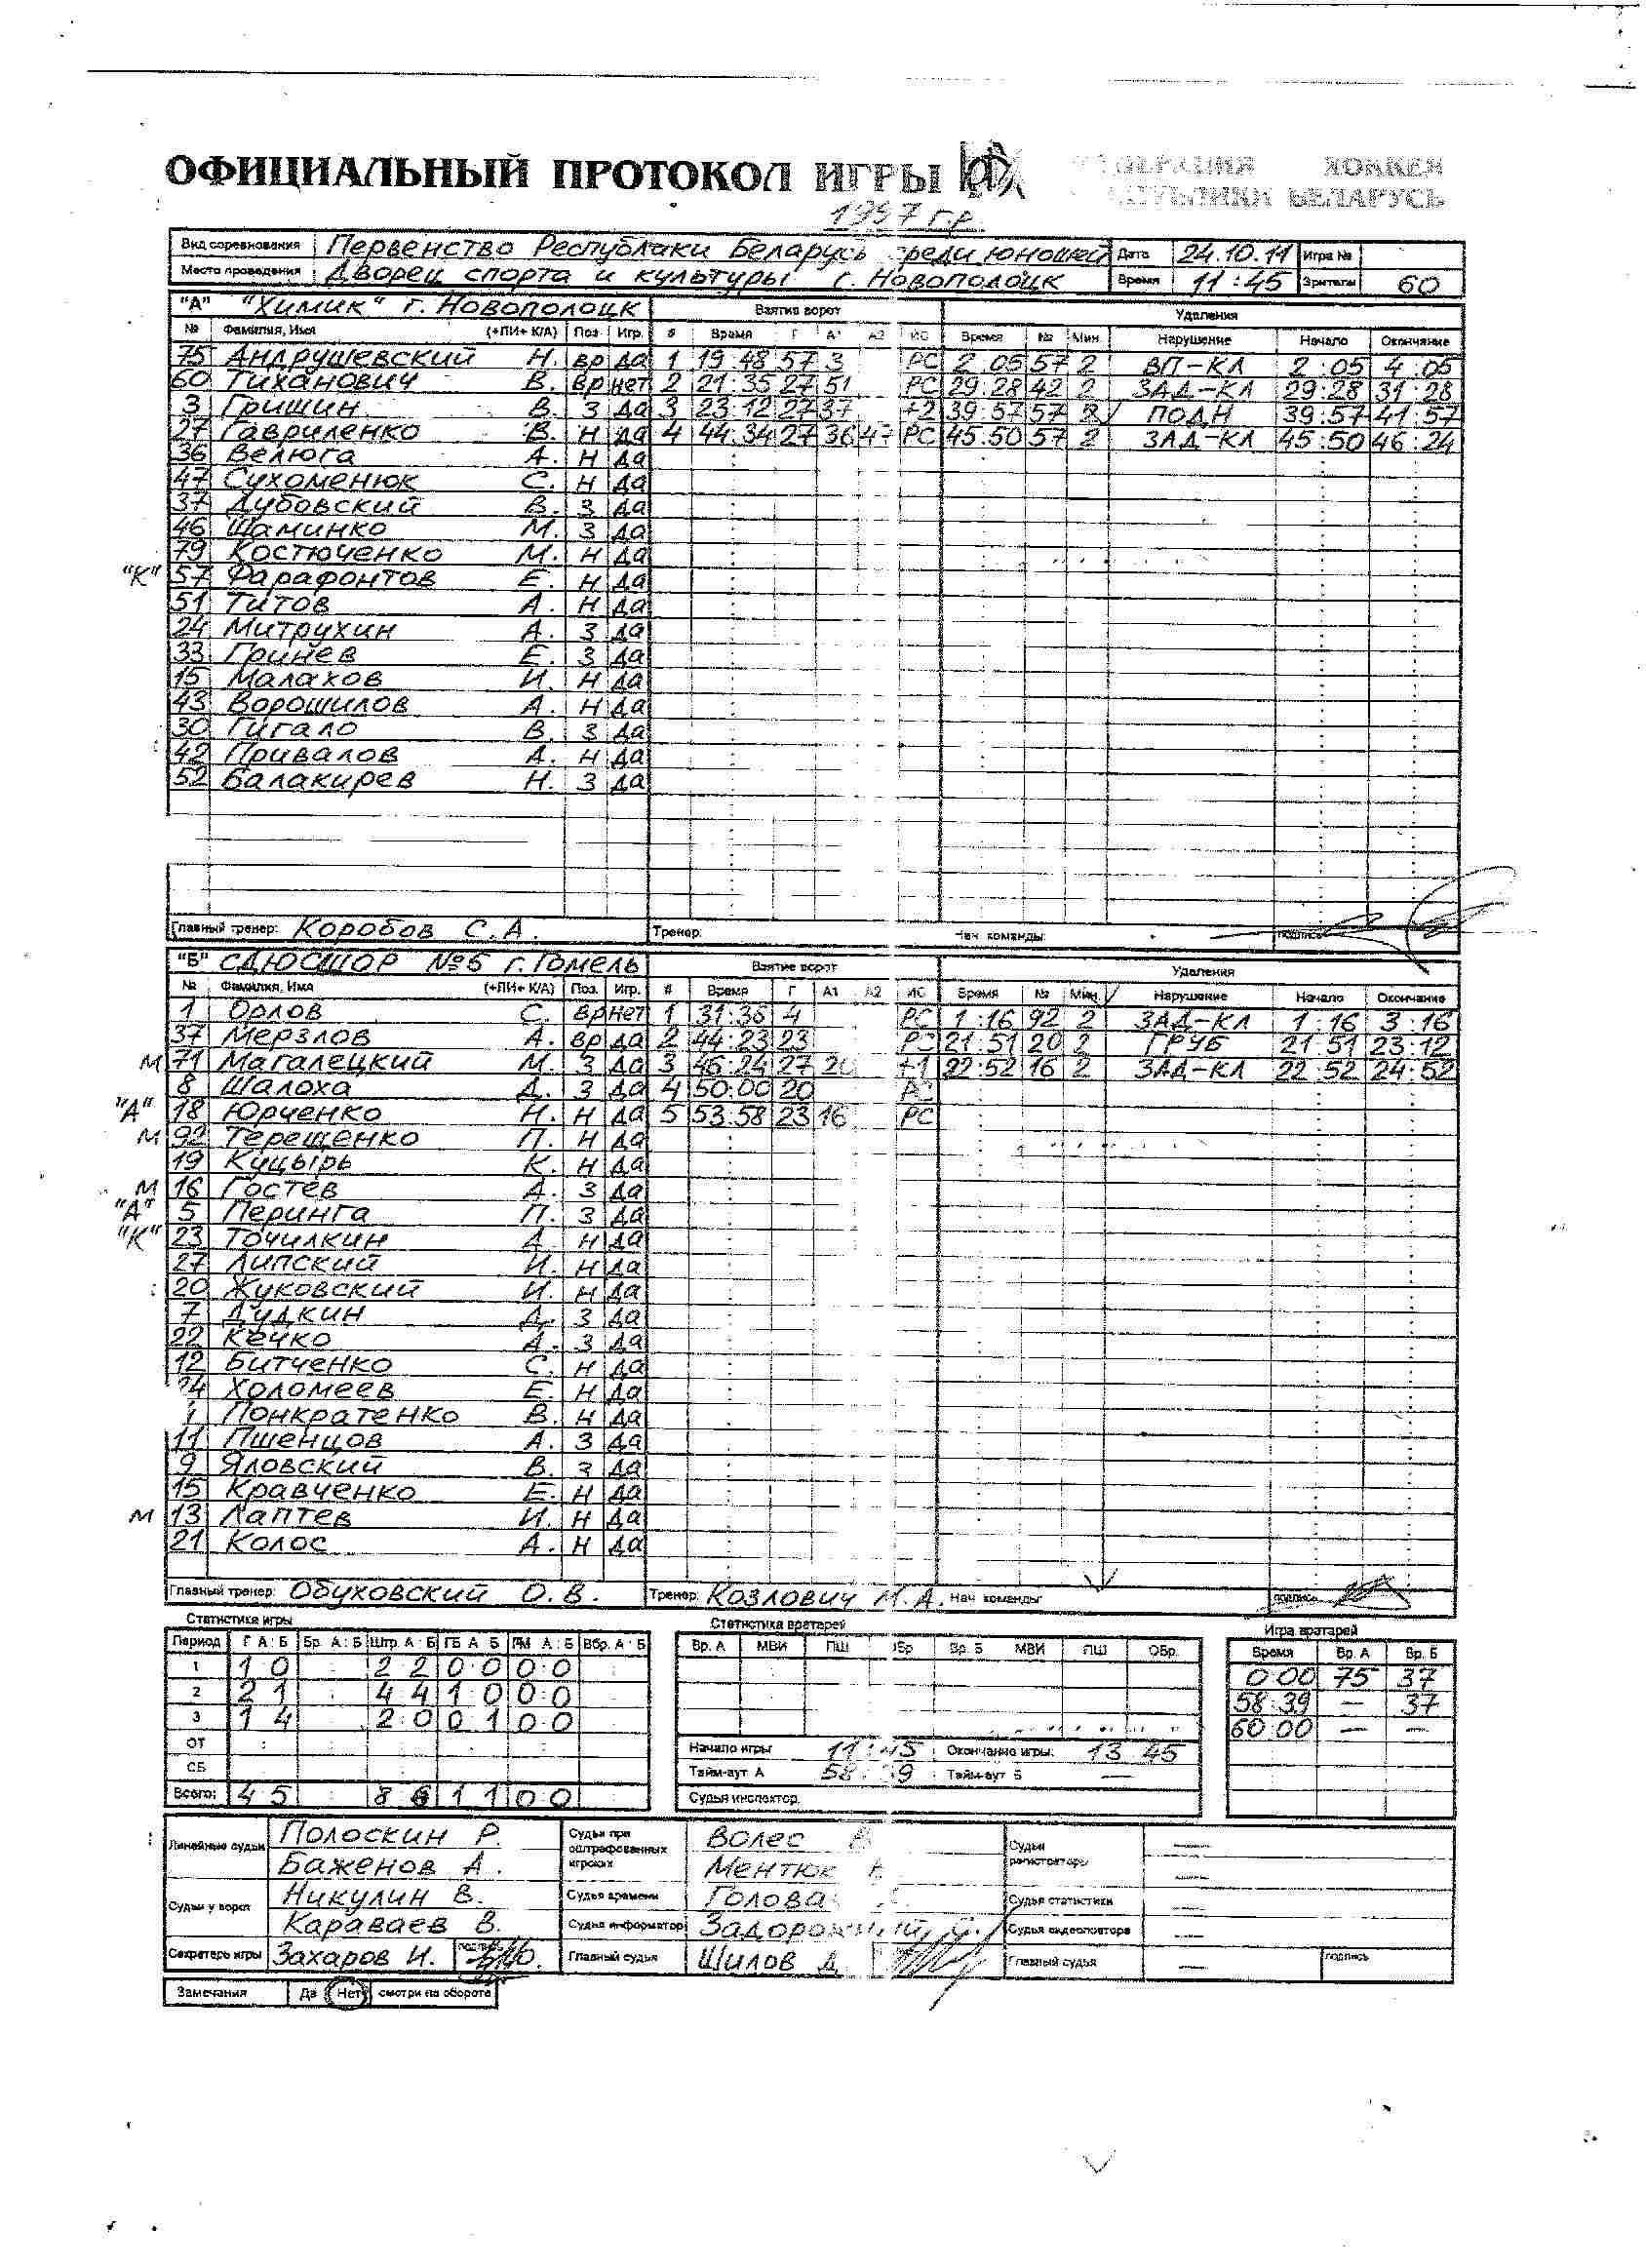 ОФИЦИАЛЬНЫЙ ПРОТОКОЛ ИГРЫ ХОККЕЯ
БЕЛАРУСЬ
1997 г.р.
Вид соревнования Первенство Республики Беларусь среди юношей Дата 24.10.11 Игра №
Место проведения Дворец спорта и культуры г. Новополоцк Время 11:45 Зрители 60
"А" "Химик" г. Новополоцк Взятие ворот Удаления
№ Фамилия, Имя (+ЛИ+ К/А) Поз Игр. # Время Г А1 А2 ИС Время № Мин. Нарушение Начало Окончание
75 Андрушевский Н. вр да 1 19:48 57 3 РС 2:05 57 2 ВП-КЛ 2:05 4:05
60 Тиханович В. вр нет 2 21:35 27 51 РС 29:28 42 2 ЗАД-КЛ 29:28 31:28
3 Гришин В. З да 3 23:12 27 37 +2 39:57 57 2 ПОДН 39:57 41:57
27 Гавриленко В. Н да 4 44:34 27 36 47 РС 45:50 57 2 ЗАД-КЛ 45:50 46:24
36 Велюга А. Н да
47 Сухоменюк С. Н да
37 Дубовский В. З да
46 Шаминко М. З да
79 Костюченко М. Н да
"К" 57 Фарафонтов Е. Н да
51 Титов А. Н да
24 Митрухин А. З да
33 Гринев Е. З да
15 Малахов И. Н да
43 Ворошилов А. Н да
30 Гигало В. З да
42 Привалов А. Н да
52 Балакирев Н. З да
Главный тренер: Коробов С.А. Тренер: Нач. команды: подпись
"Б" СДЮСШОР №5 г. Гомель Взятие ворот Удаления
№ Фамилия, Имя (+ЛИ+ К/А) Поз. Игр. # Время Г А1 А2 ИС Время № Мин. Нарушение Начало Окончание
1 Орлов С. вр нет 1 31:36 4 РС 1:16 92 2 ЗАД-КЛ 1:16 3:16
37 Мерзлов А. вр да 2 44:23 23 РС 21:51 20 2 ГРУБ 21:51 23:12
М 71 Магалецкий М. З да 3 46:24 27 20 +1 22:52 16 2 ЗАД-КЛ 22:52 24:52
8 Шалоха Д. З да 4 50:00 20 РС
"А" 18 Юрченко Н. Н да 5 53:58 23 16 РС
М 92 Терещенко П. Н да
19 Куцырь К. Н да
М 16 Гостев А. З да
"А" 5 Перинга П. З да
"К" 23 Точилкин А. Н да
27 Липский И. Н да
20 Жуковский И. Н да
7 Дудкин Д. З да
22 Кечко А. З да
12 Битченко С. Н да
24 Холомеев Е. Н да
Понкратенко В. Н да
11 Пшенцов А. З да
9 Яловский В. З да
15 Кравченко Е. Н да
М 13 Лаптев И. Н да
21 Колос А. Н да
Главный тренер: Обуховский О.В. Тренер: Козлович И.А. Нач. команды: подпись
Статистика игры Статистика вратарей Игра вратарей
Период Г А:Б Бр. А:Б Штр. А:Б ГБ А Б ГМ А:Б Вбр. А:Б Вр. А МВИ ПШ ОБр Вр. Б МВИ ПШ ОБр. Время Вр. А Вр. Б
1 1 0 2 2 0:0 0:0 0:00 75 37
2 2 1 4 4 1:0 0:0 58:39 — 37
3 1 4 2:0 0 1 0 0 60:00 — —
ОТ Начало игры 11:45 Окончание игры: 13 45
СБ Тайм-аут А 58:39 Тайм-аут Б —
Всего: 4 5 8 6 1 1 0 0 Судья инспектор
Линейные судьи Полоскин Р. Судьи при оштрафованных игроках Волес Судьи регистраторы —
Баженов А. Ментюк —
Судьи у ворот Никулин В. Судья времени Голова Судья статистики —
Караваев В. Судья информатор Задорожный С. Судья видеоповтора —
Секретарь игры Захаров И. подпись Главный судья Шилов Д. Главный судья — подпись
Замечания Да Нет смотри на обороте